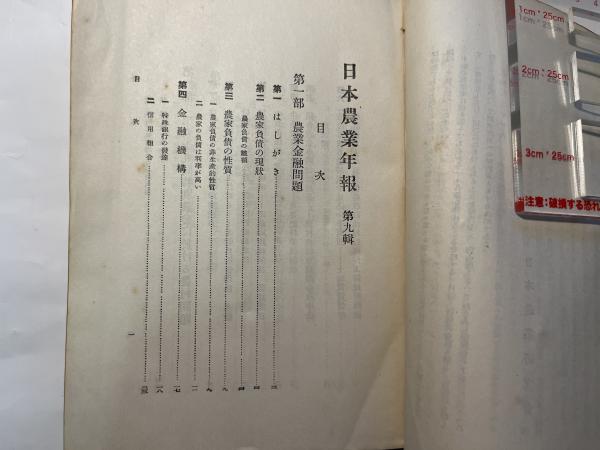 日本農業年報 第九輯
目次
第一部 農業金融問題
第一 はしがき……三
第二 農家負債の現狀……四
農家負債の總額……四
第三 農家負債の性質……九
一 農家負債の非生産的性質……九
二 農家の負債は利率が高い……一一
第四 金融機構……一七
一 特殊銀行の發達……一八
二 信用組合
目次
一
1cm・25cm
2cm・25cm
3cm・25cm
注意:破損する恐れ